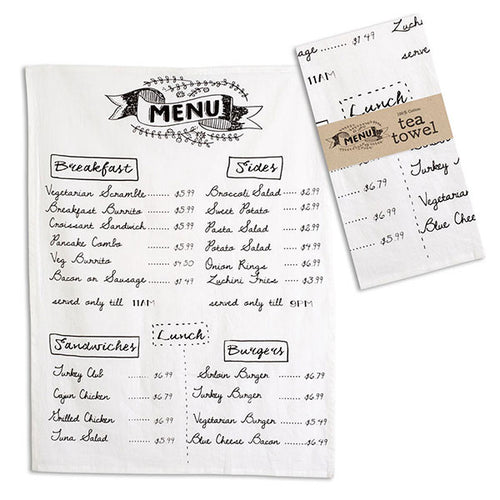 MENU
Breakfast
Vegetarian Scramble ... $5.99
Breakfast Burrito ...... $5.99
Croissant Sandwich ..... $5.99
Pancake Combo ..... $5.99
Veg Burrito ..... $4.50
Bacon or Sausage ..... $1.49
served only till 11AM
Sides
Broccoli Salad ...... $2.99
Sweet Potato ...... $2.99
Pasta Salad ...... $2.99
Potato Salad ...... $4.99
Onion Rings ...... $6.99
Zuchini Fries ...... $3.99
served only till 9PM
Lunch
Sandwiches
Turkey Club ..... $6.99
Cajun Chicken ..... $6.79
Grilled Chicken ..... $6.99
Tuna Salad ..... $5.99
Burgers
Sirloin Burger ....... $6.79
Turkey Burger ....... $6.99
Vegetarian Burger ..... $5.49
Blue Cheese Bacon ..... $6.49
$1.49
sage ....... $5.99
served
11AM
Lunch
MENU
100% Cotton
tea
towel
Turkey
..... $6.79
Vegetaria
..... $6.99
Blue Cheese
..... $5.99